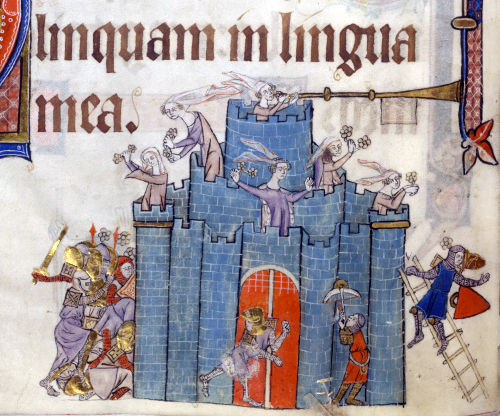 linquam in lingua
mea.